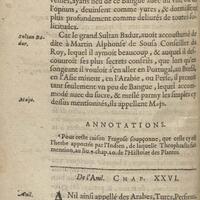 l'opinion, sont comme yures, & domptez
plus profondement comme deliurés de toutes
licitudes.
Sultan Ba-
dur.
Car le grand Sultan Badur, auoit accoustumé de
dire à Martin Alphonse de Sousa Conseiller du
Roy, lequel il aymoit beaucoup, & auquel il de-
couuroit ses plus secrets conseils, que lors qu'en
songeant il vouloit s'en aller en Portugal, au Bresil,
en l'Asie mineur, en l'Arabie, ou Perse, il prenoit
tant seulement vn peu de Bangue, lequel accom-
modé auec du sucre, & meslé parmy les simples cy
dessus mentionnés, ils appellent Majo.
Majo.
ANNOTATIONS.
Pour ceste raison Fragose souspçonne, que ceste cy est
l'herbe apportée par l'Indien, de laquelle Theophraste fait
mention, au liu. 9. chap. 20. de l'Histoire des Plantes.
De l'Anil. CHAP. XXVI.
Anil.
ANil ainsi appellé des Arabes, Turcs, Persiens